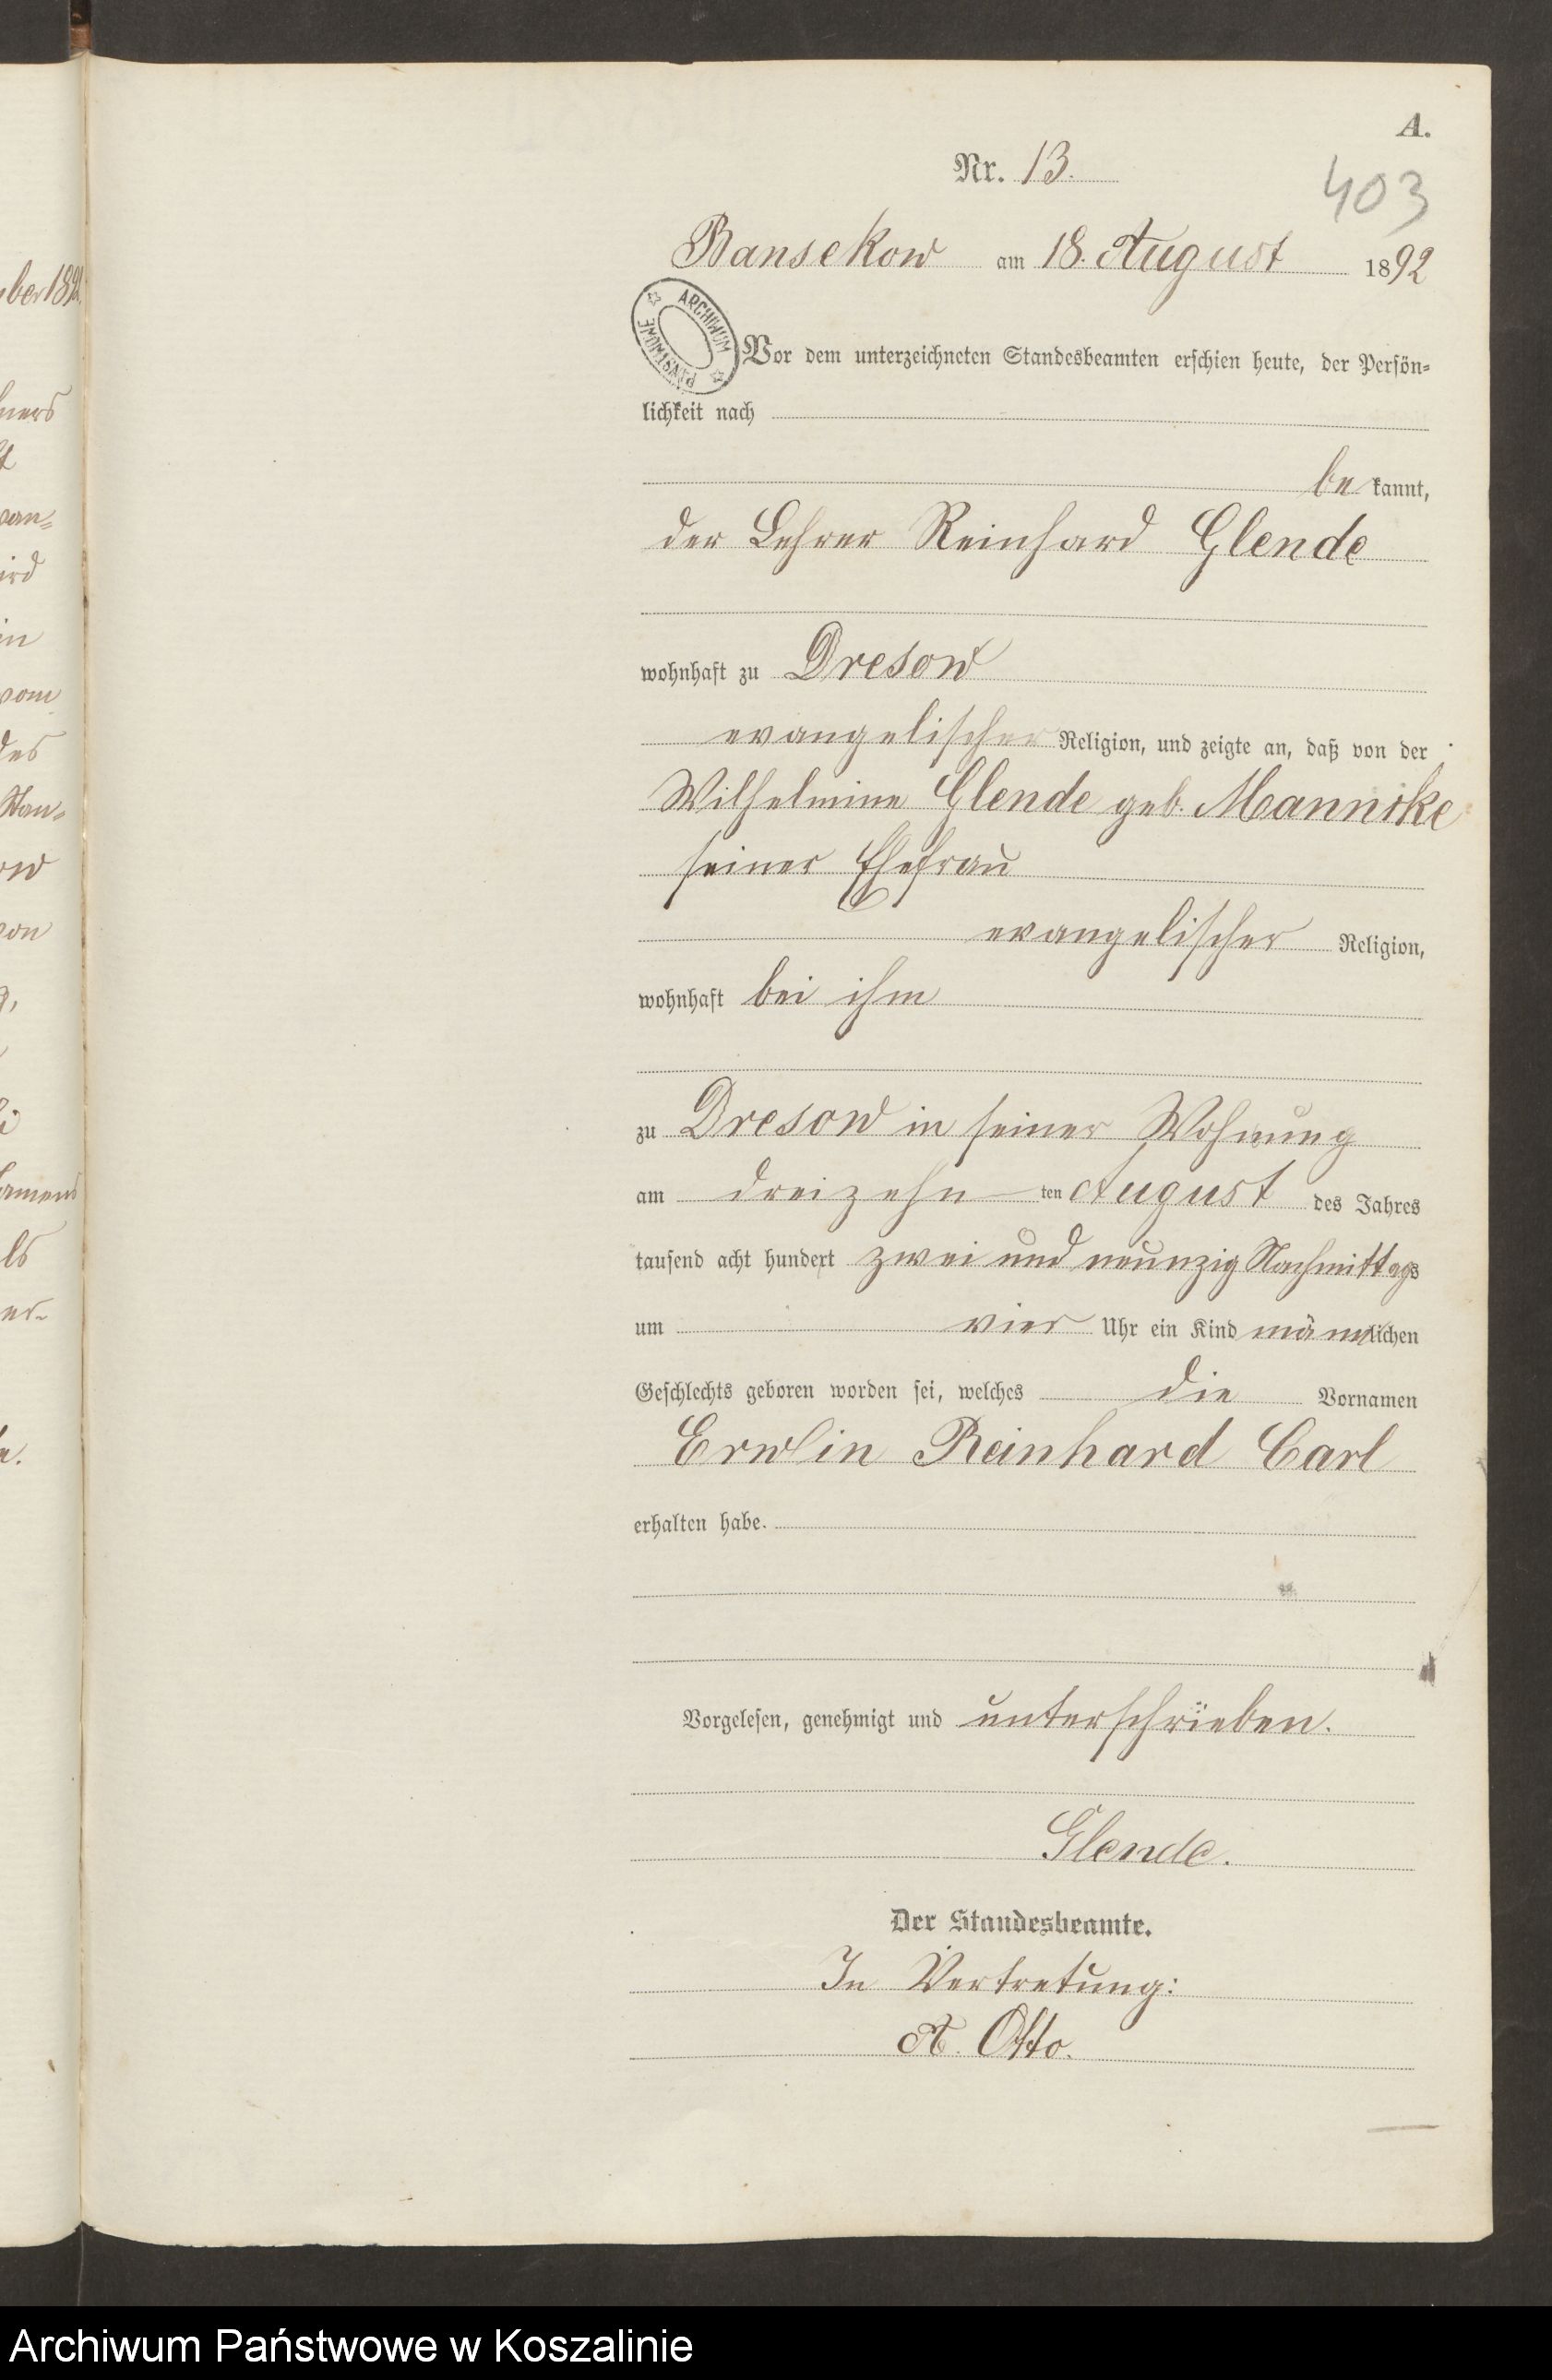 A.
Nr. 13.
403
Bansekow am 18. August 1892
ARCHIWUM PAŃSTWOWE
Vor dem unterzeichneten Standesbeamten erschien heute, der Persön=
lichkeit nach
be kannt,
der Lehrer Reinhard Glende
wohnhaft zu Dresow
evangelischer Religion, und zeigte an, daß von der
Wilhelmine Glende geb. Mannske
seiner Ehefrau
evangelischer Religion,
wohnhaft bei ihm
zu Dresow in seiner Wohnung
am dreizehn ten August des Jahres
tausend acht hundert zwei und neunzig Nachmittags
um vier Uhr ein Kind männlichen
Geschlechts geboren worden sei, welches die Vornamen
Erwin Reinhard Carl
erhalten habe.
Vorgelesen, genehmigt und unterschrieben.
Glende.
Der Standesbeamte.
In Vertretung:
A. Otto.
Archiwum Państwowe w Koszalinie